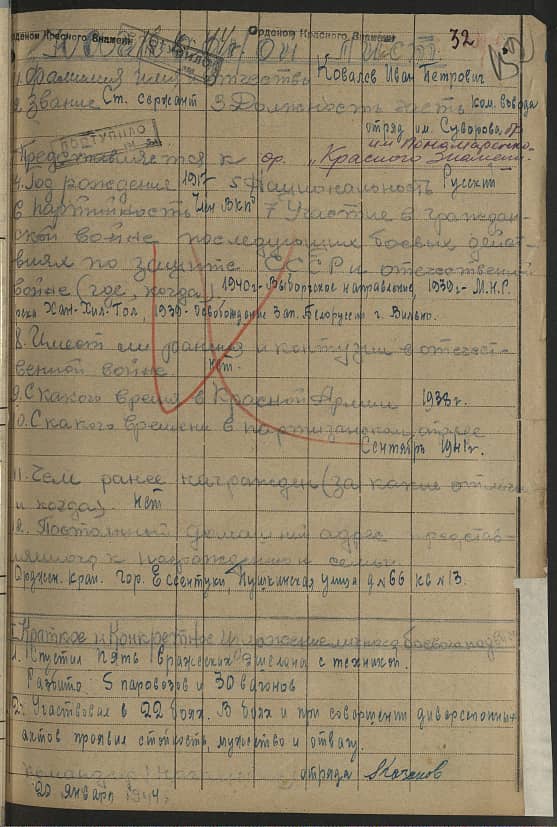 Орденом Красного Знамени Орденом Красного Знамени
Наградной лист 32
1. Фамилия имя отчество Ковалев Иван Петрович
2. Звание Ст. сержант 3 Должность часть ком. взвода
отряд им. Суворова бр.
ПОСТУПИЛО им Пономаренко
Представляется к ор. „Красного Знамени"
4. Год рождения 1917 5. Национальность Русский
6 партийность Член ВКП 7 Участие в граждан-
ской войне последующих боевых дейст-
виях по защите СССР и отечествен
войне (где, когда) 1940г - Выборгское направление, 1939г - М.Н.Р.
река Хал-Хил-Гол, 1939 - освобождение Зап. Белоруссии г. Вильно.
8. Имеет ли ранения и контузии в отечест-
венной войне нет.
9. С какого время в Красной Армии 1938г.
10. С какого времени в партизанском отряде
Сентябрь 1941г.
11. Чем ранее награжден (за какие отличи
и когда). нет
12. Постоянный домашний адрес представ-
ляемого к награждению и семьи
Орджон. край. гор. Ессентуки, Пушкинская улица д № 66 кв № 13.
I Краткое и Конкретное изложение личного боевого подвига
1. Спустил пять вражеских эшелона с техникой.
Разбито 5 паровозов и 30 вагонов
2. Участвовал в 22 боях. В боях и при совершении диверсионных
актов проявил стойкость, мужество и отвагу.
Командир отряда
20 января 1944г